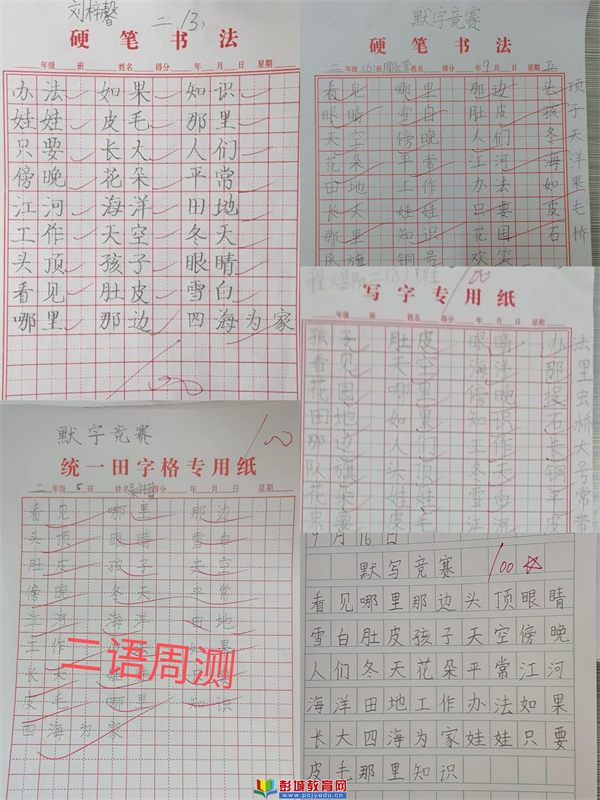 刘梓馨 二 13.
硬笔书法
年级 班 姓名 得分 年 月 日 星期
办法 如果 知识
娃娃 皮毛 那里
只要 长大 人们
傍晚 花朵 平常
江河 海洋 田地
工作 天空 冬天
头顶 孩子 眼睛
看见 肚皮 雪白
哪里 那边 四海为家
100
默字竞赛
硬笔书法
二 年级 (6) 班 姓名 得分 年 9 月 日 星期 五
看见 哪里 那边 头顶
眼睛 雪白 肚皮 孩子
天空 傍晚 人们 冬天
花朵 平常 江河 海洋
田地 工作 办法 如果
长大 娃娃 只要 皮毛
那里 知识 花园 石桥
队旗 铜号 欢笑
二(8)班 100
写字专用纸
年级 班 姓名 得分 年 月 日 星期
孩子 肚皮 眼睛 办法
看见 天空 海洋 那里
花园 哪里 傍晚
田地 如果 知识 石桥
那边 人们 工作 长大
队旗 头顶 冬天 铜号
花朵 娃娃 雪白 平常
皮毛 江河
默字竞赛
100
统一田字格专用纸
二 年级 5 班 姓名 得分 年 月 日 星期
看见 哪里 那边
头顶 眼睛 雪白
肚皮 孩子 天空
傍晚 冬天 平常
江河 海洋 田地
工作
长大
皮毛 那里 知识
四海为家
二语周测
9月16日
默写竞赛 100
看见哪里那边头顶眼睛
雪白肚皮孩子天空傍晚
人们冬天花朵平常江河
海洋田地工作办法如果
长大四海为家娃娃只要
皮毛那里知识
彭城教育网
www.pcjyedu.cn